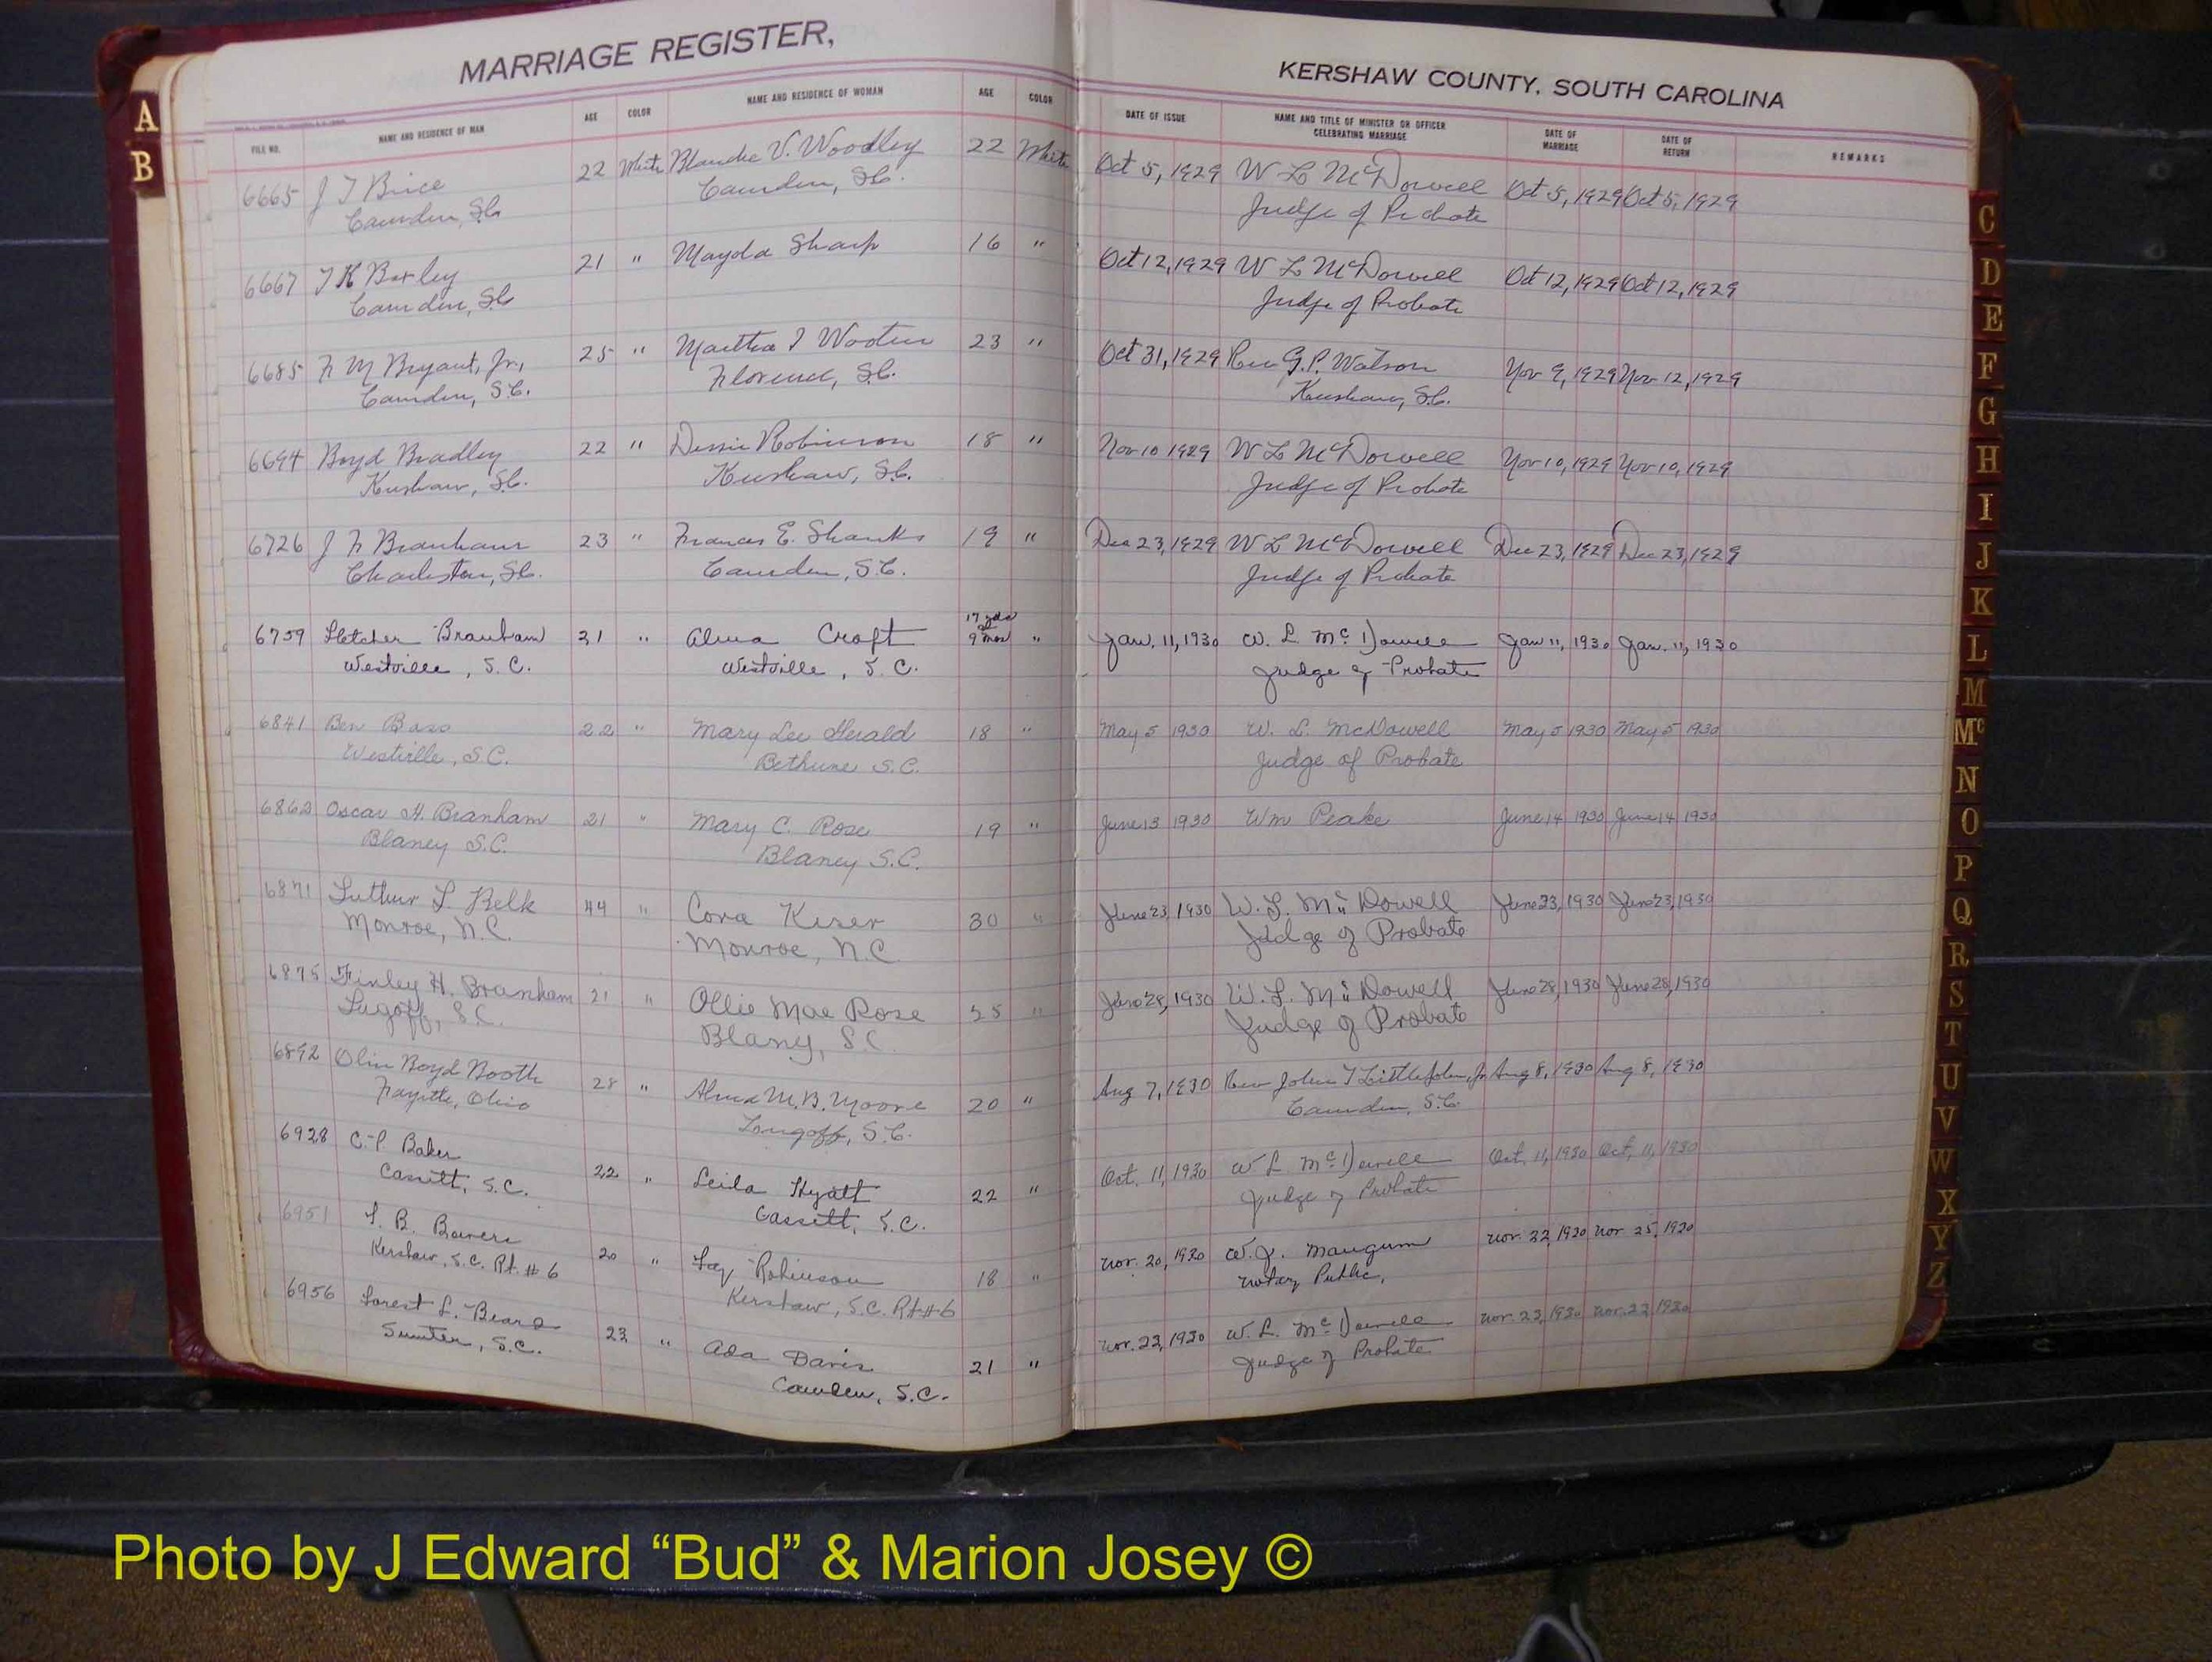 MARRIAGE REGISTER,
KERSHAW COUNTY, SOUTH CAROLINA
A
B
FILE NO. NAME AND RESIDENCE OF MAN AGE COLOR NAME AND RESIDENCE OF WOMAN AGE COLOR DATE OF ISSUE NAME AND TITLE OF MINISTER OR OFFICER CELEBRATING MARRIAGE DATE OF MARRIAGE DATE OF RETURN REMARKS
6665 J T Brice 22 White Blanche V. Woodley 22 White Oct 5, 1929 W L McDowell Oct 5, 1929 Oct 5, 1929
Camden, SC Camden, SC. Judge of Probate
6667 T K Boxley 21 " Mayola Sharp 16 " Oct 12, 1929 W L McDowell Oct 12, 1929 Oct 12, 1929
Camden, SC Judge of Probate
6685 F M Bryant, Jr., 25 " Martha I Wooten 23 " Oct 31, 1929 Rev G.P. Watson Nov 9, 1929 Nov 12, 1929
Camden, S.C. Florence, S.C. Kershaw, S.C.
6694 Boyd Bradley 22 " Dessie Robinson 18 " Nov 10 1929 W L McDowell Nov 10, 1929 Nov 10, 1929
Kershaw, S.C. Kershaw, S.C. Judge of Probate
6726 J F Branham 23 " Frances E. Shanks 19 " Dec 23, 1929 W L McDowell Dec 23, 1929 Dec 23, 1929
Charleston, SC. Camden, S.C. Judge of Probate
6759 Fletcher Branham 21 " Alma Croft 17 yrs 9 mos " Jan. 11, 1930 W. L. McDowell Jan 11, 1930 Jan. 11, 1930
Westville, S.C. Westville, S.C. Judge of Probate
6841 Ben Bass 22 " Mary Lee Gerald 18 " May 5 1930 W. L. McDowell May 5 1930 May 5 1930
Westville, S.C. Bethune S.C. Judge of Probate
6862 Oscar H. Branham 21 " Mary C. Rose 19 " June 13 1930 Wm Peake June 14 1930 June 14 1930
Blaney S.C. Blaney S.C.
6871 Luther L. Belk 44 " Cora Kiser 30 " June 23, 1930 W. L. McDowell June 23, 1930 June 23, 1930
Monroe, N.C. Monroe, N.C. Judge of Probate
6875 Finley H. Branham 21 " Ollie Mae Rose 25 " June 28, 1930 W. L. McDowell June 28, 1930 June 28, 1930
Lugoff, S.C. Blany, S.C. Judge of Probate
6892 Olin Boyd Booth 28 " Alma M. B. Moore 20 " Aug 7, 1930 Rev John T Littlejohn, Jr Aug 8, 1930 Aug 8, 1930
Fayette, Ohio Longoff, S.C. Camden, S.C.
6928 C. P. Baker 22 " Leila Hyatt 22 " Oct. 11, 1930 W L McDowell Oct. 11, 1930 Oct. 11, 1930
Cassett, S.C. Cassett, S.C. Judge of Probate
6951 B. Bowers 20 " Fay Robinson 18 " Nov. 20, 1930 W. J. Mangum Nov. 22, 1930 Nov. 25, 1930
Kershaw, S.C. Rt. # 6 Kershaw, S.C. Rt # 6 Notary Public,
6956 Forest L. Beard 23 " Ada Davis 21 " Nov. 23, 1930 W. L. McDowell Nov. 23, 1930 Nov. 23 1930
Sumter, S.C. Camden, S.C. Judge of Probate
C
D
E
F
G
H
I
J
K
L
M
Mc
N
O
P
Q
R
S
T
U
V
W
X
Y
Z
Photo by J Edward “Bud” & Marion Josey ©